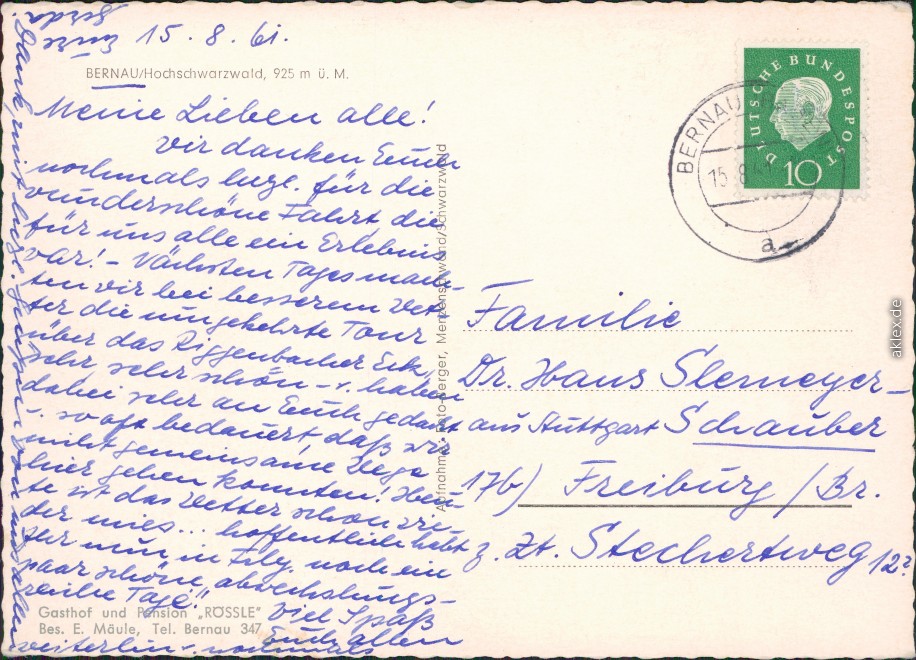 15. 8. 61.
BERNAU/Hochschwarzwald, 925 m ü. M.
Meine Lieben alle!
Wir danken Euch
nochmals herzl. für die
wunderschöne Fahrt die
für uns alle ein Erlebnis
war! - Nächsten Tages mach-
ten wir bei besserem Wet-
ter die umgekehrte Tour
über das Riggenbacher Eck,
sehr sehr schön - u. haben
dabei sehr an Euch gedacht
u. so oft bedauert, daß wir
nicht gemeinsame Wege
hier gehen konnten! Heu-
te ist das Wetter schon wie-
der mies... hoffentlich habt
Ihr nun in Fbg. noch ein
paar schöne, abwechslungs-
reiche Tage!!
Viel Spaß
Euch allen
weiterhin u. nochmals
Gasthof und Pension „RÖSSLE"
Bes. E. Mäule, Tel. Bernau 347
Dank, mit herzl.
Gerda
Aufnahme: Foto-Berger, Menzenschwand/Schwarzwald
DEUTSCHE BUNDESPOST
10
BERNAU
15.8.
a
Familie
Dr. Hans Slemeyer-
aus Stuttgart Schauber
17b) Freiburg/Br.
z. Zt. Stechertweg 12?
aklex.de